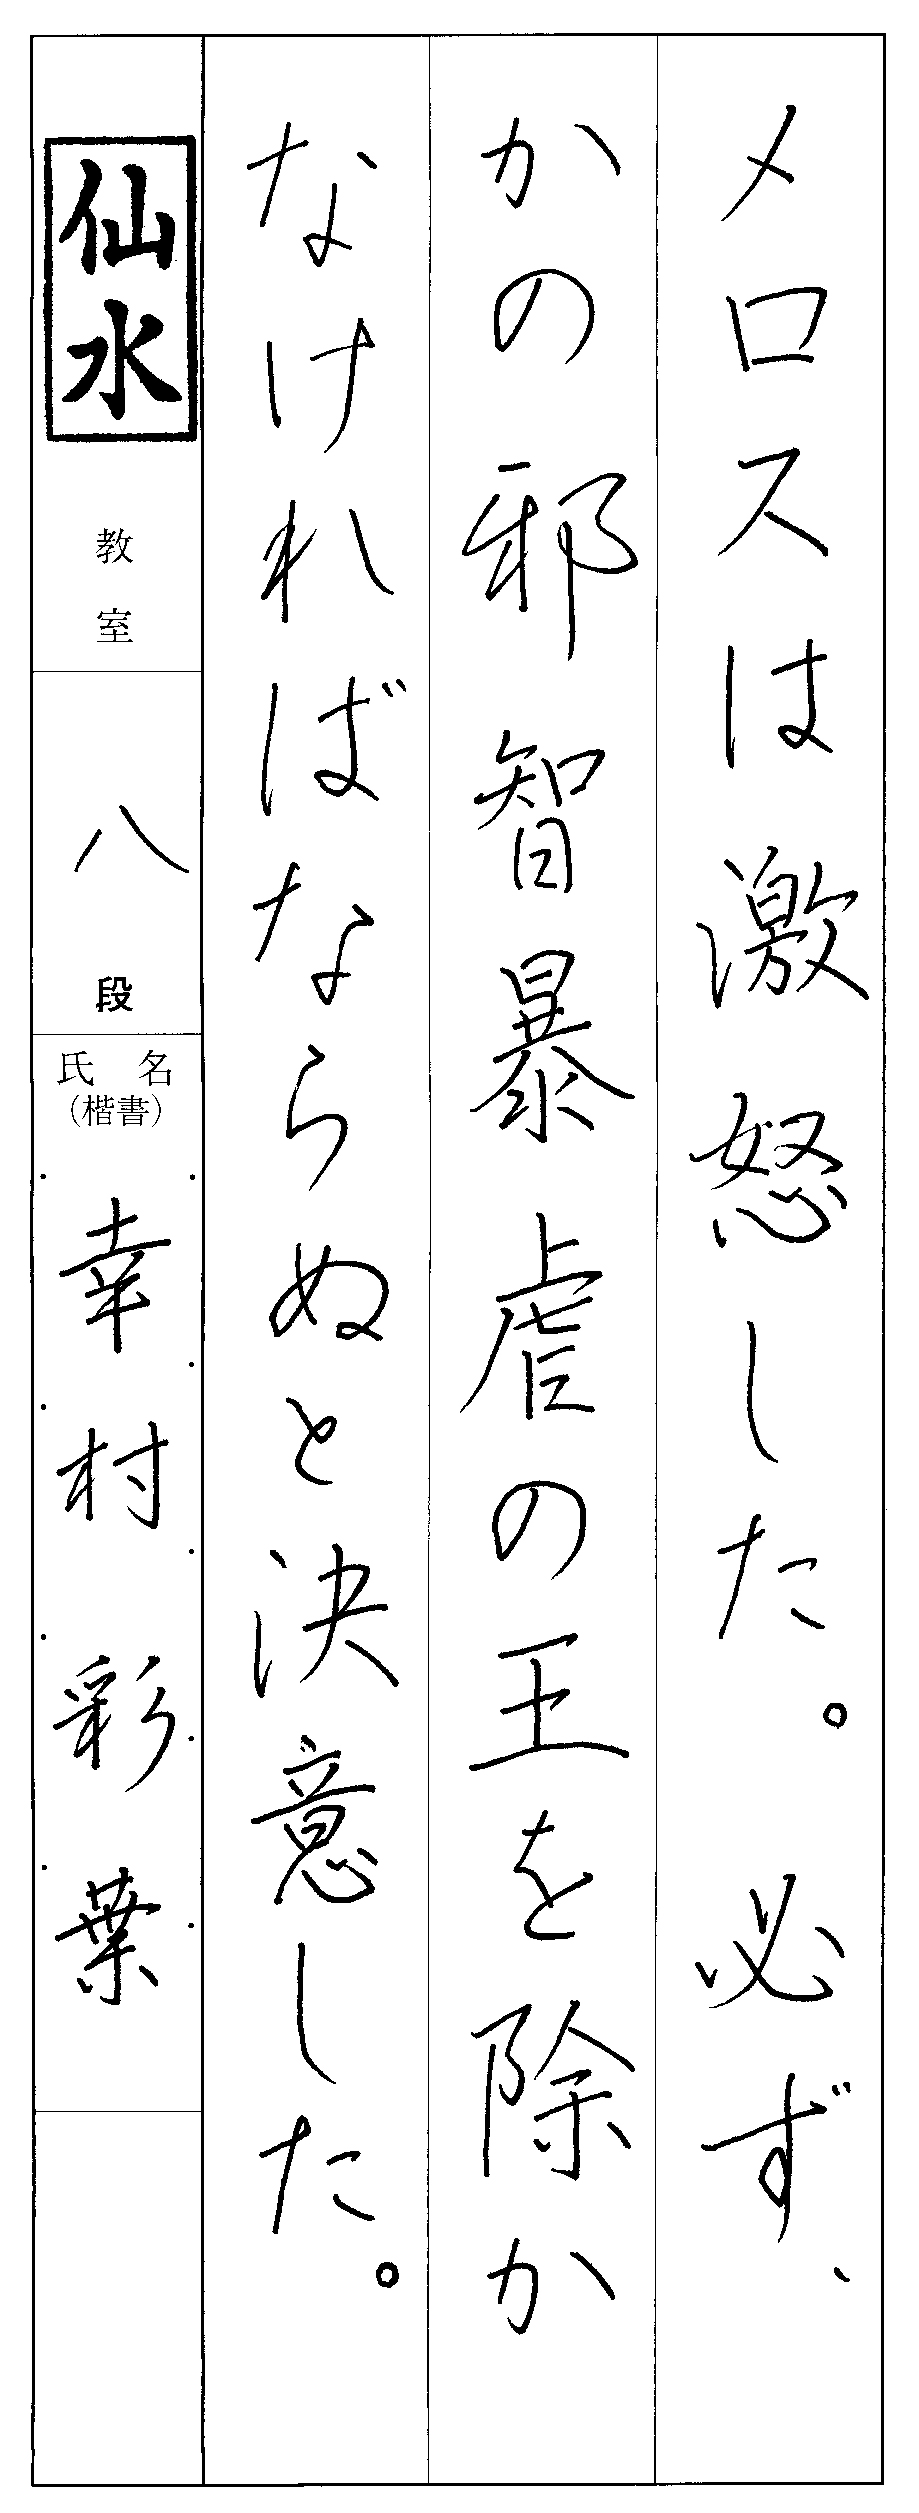 メロスは激怒した。必ず、
かの邪智暴虐の王を除か
なければならぬと決意した。
仙水
教室
八
段
氏名
(楷書)
幸村彩葉